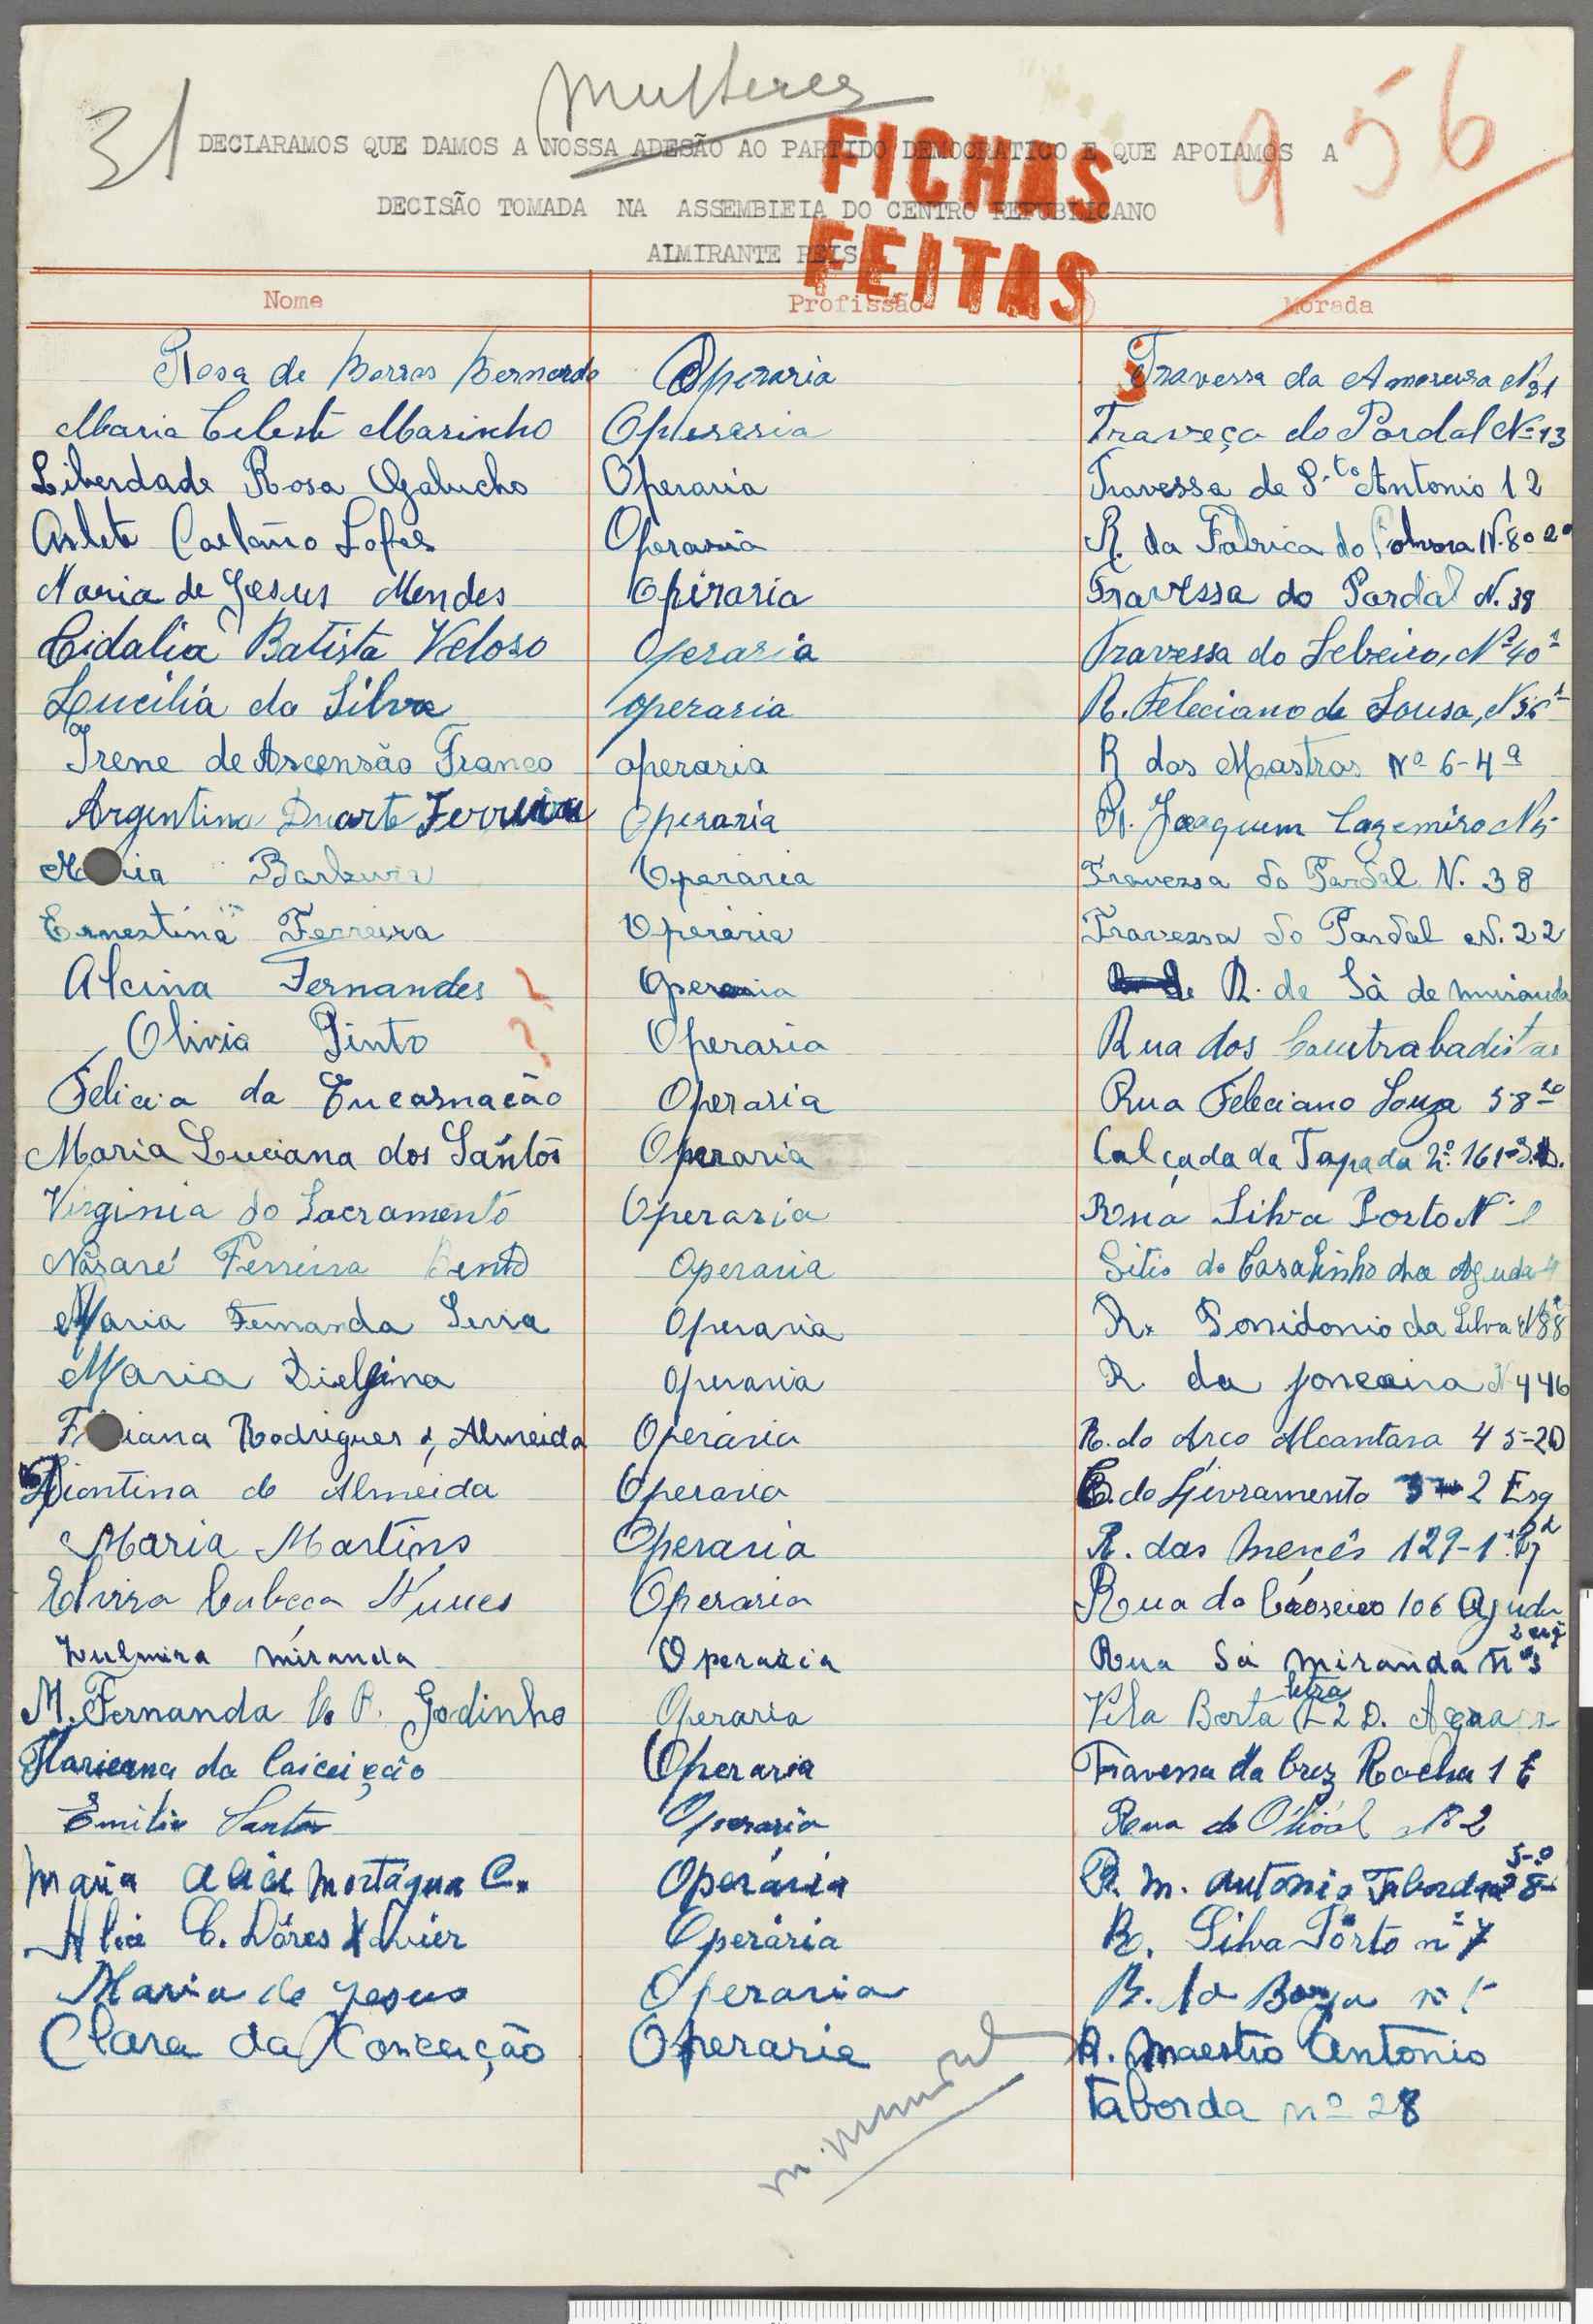 mulheres
31
956
DECLARAMOS QUE DAMOS A NOSSA ADESÃO AO PARTIDO DEMOCRATICO E QUE APOIAMOS A
DECISÃO TOMADA NA ASSEMBLEIA DO CENTRO REPUBLICANO
ALMIRANTE REIS
FICHAS
FEITAS
Nome Profissão Morada
Rosa de Barros Bernardo Operaria Travessa da Amoreira Nº 31
Maria Celeste Marinho Operaria Traveça do Pardal Nº 13
Liberdade Rosa Galucho Operaria Travessa de S.to Antonio 12
Arlete Caetano Lopes Operaria R. da Fabrica da Polvora N. 80 2º
Maria de Jesus Mendes Opiraria Travessa do Pardal N. 38
Cidalia Batista Veloso Operaria Travessa do Sebeiro, Nº 40 1º
Lucilia da Silva operaria R. Feleciano de Sousa, N
Irene de Ascensão Franco operaria R dos Mastros Nº 6-4º
Argentina Duarte Ferreira Operaria R. Joaquim Cazemiro Nº
Maria Operaria Travessa do Pardal N. 38
Ernestina Ferreira Operária Travessa do Pardal N. 22
Alcina Fernandes ? Operaria R. de Sà de Miranda
Olivia Pinto ? Operaria Rua dos
Felicia da Encarnacão Operaria Rua Feleciano Souza 58 2º
Maria Luciana dos Santos Operaria Calçada da Tapada Nº 161
Virginia do Sacramento Operaria Rua Silva Porto Nº
Nàsaré Ferreira Bento Operaria Sitio do Casalinho da Ajuda 4
Maria Fernanda Serra Operaria R. Posidonio da Silva Nº
Maria Dielgina Operaria R. da Junceira N 446
Fabiana Rodrigues d, Almeida Operária R. do Arco Alcantara 45-2D
de Almeida Operaria C. do Livramento 2 Esq
Maria Martins Operaria R. das Mercês 129-1º
Elvira Cabeca Nunes Operaria Rua do Cruseiro 106 Ajuda
Zulmira miranda Operaria Rua Sá miranda nº 3 2 esq
M. Fernanda P. Godinho Operaria Vila Berta letra L 2 D.
da Operaria Travessa da Cruz Rocha 1 E
Emilia Santos Operaria Rua do Olival Nº 2
Maria Alice Mortágua C. Operária R. M. Antonio Taborda 28 3-D
Alice C. Dôres Xavier Operária R. Silva Pôrto nº 7
Maria de Jesus Operaria R. nº
Clara da Conceição Operaria R. Maestro Antonio
Taborda nº 28